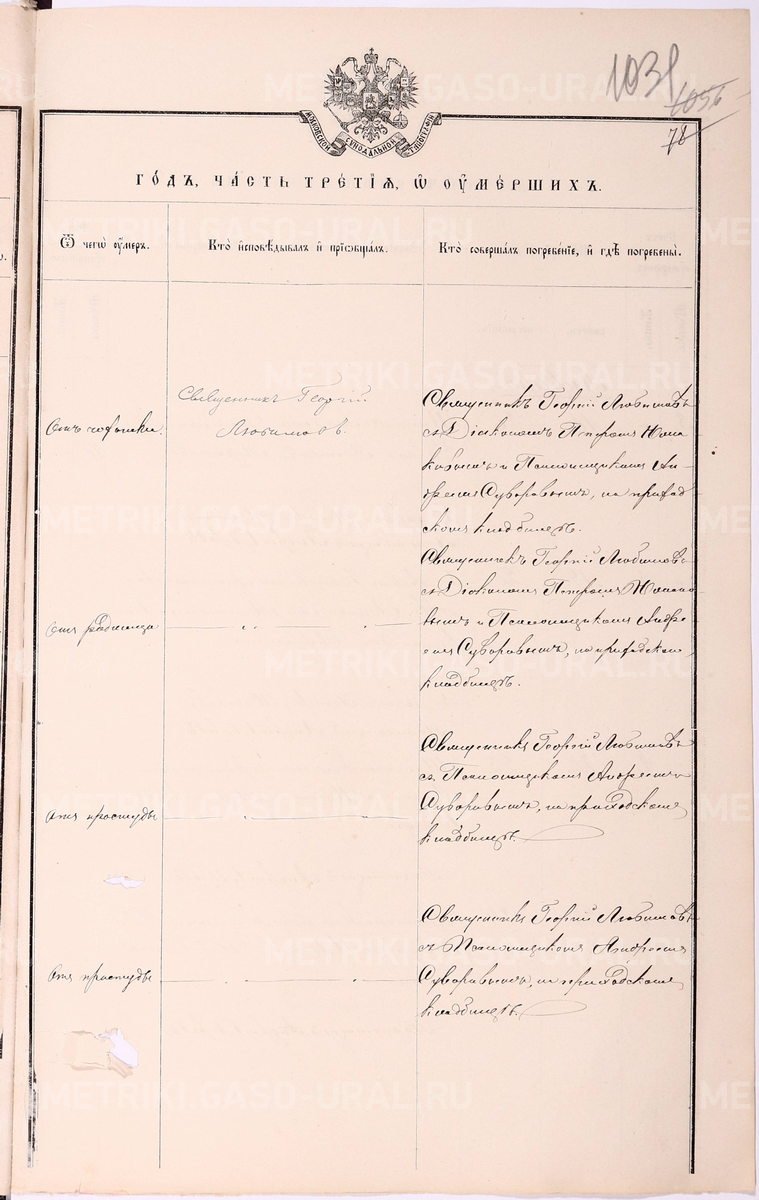 1031
1056
78
МОСКОВСКОЙ СѴНОДАЛЬНОЙ ТИПОГРАФІИ
ГО́ДЪ, ЧА́СТЬ ТРЕ́ТІѦ, Ѽ ОУ҆МЕ́РШИХЪ.
Ѿ чегѡ̀ оу҆́меръ.
Кто̀ и҆сповѣ́дывалъ и҆ прїѡбща́лъ.
Кто̀ соверша́лъ погребе́нїе, и҆ гдѣ̀ погребены̀.
Отъ чахотки.
Священникъ Георгій
Любимовъ.
Священникъ Георгій Любимовъ
съ Діакономъ Петромъ
и Псаломщикомъ Ан-
дреемъ Суворовымъ, на приход-
скомъ кладбищѣ.
Отъ родимца
— „ — „ —
Священникъ Георгій Любимовъ
съ Діакономъ Петромъ
и Псаломщикомъ Андре-
емъ Суворовымъ, на приходскомъ
кладбищѣ.
Отъ простуды
— „ — „ —
Священникъ Георгій Любимовъ
съ Псаломщикомъ Андреемъ
Суворовымъ, на приходскомъ
кладбищѣ.
Отъ простуды
— „ — „ —
Священникъ Георгій Любимовъ
съ Псаломщикомъ Андреемъ
Суворовымъ, на приходскомъ
кладбищѣ.
METRIKI.GASO-URAL.RU